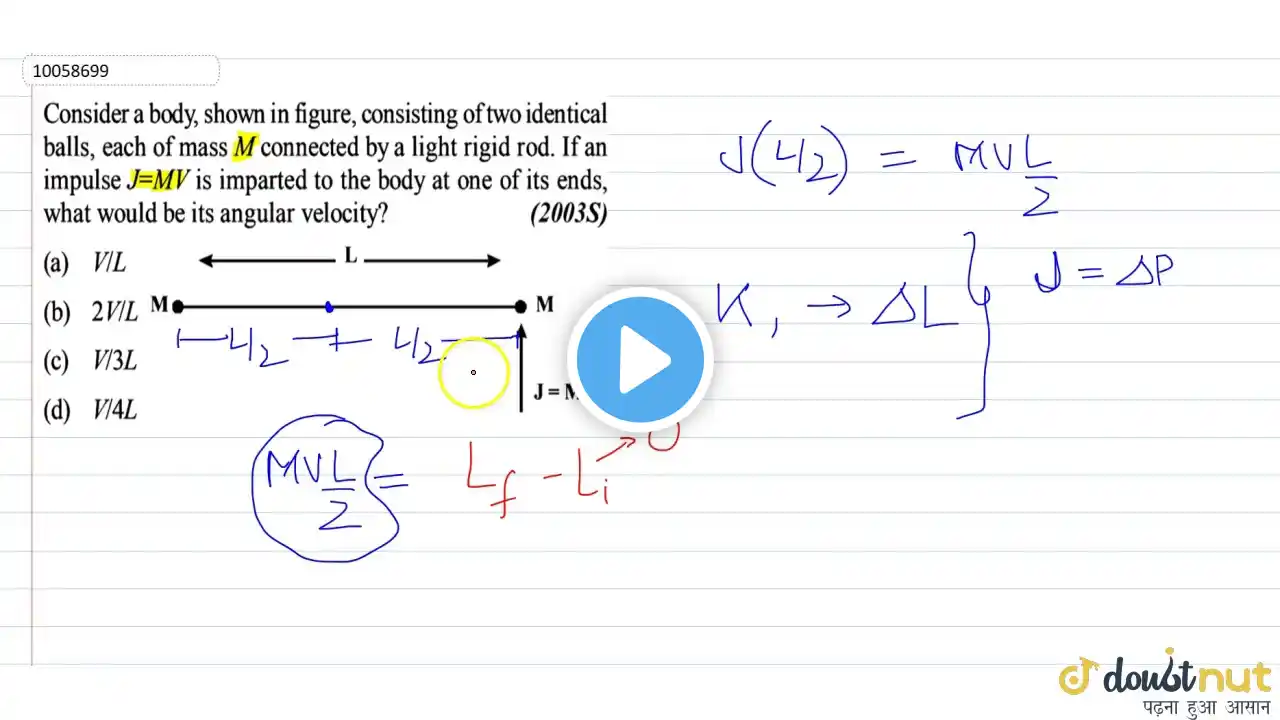 10058699
Consider a body, shown in figure, consisting of two identical
balls, each of mass M connected by a light rigid rod. If an
impulse J=MV is imparted to the body at one of its ends,
what would be its angular velocity? (2003S)
(a) V/L
(b) 2V/L
(c) V/3L
(d) V/4L
L
M M
L/2 L/2
J = M
J(L/2) = MV L/2
K, → ΔL } J = ΔP
MV L/2 = Lf - Li → 0
doubtnut
पढ़ना हुआ आसान